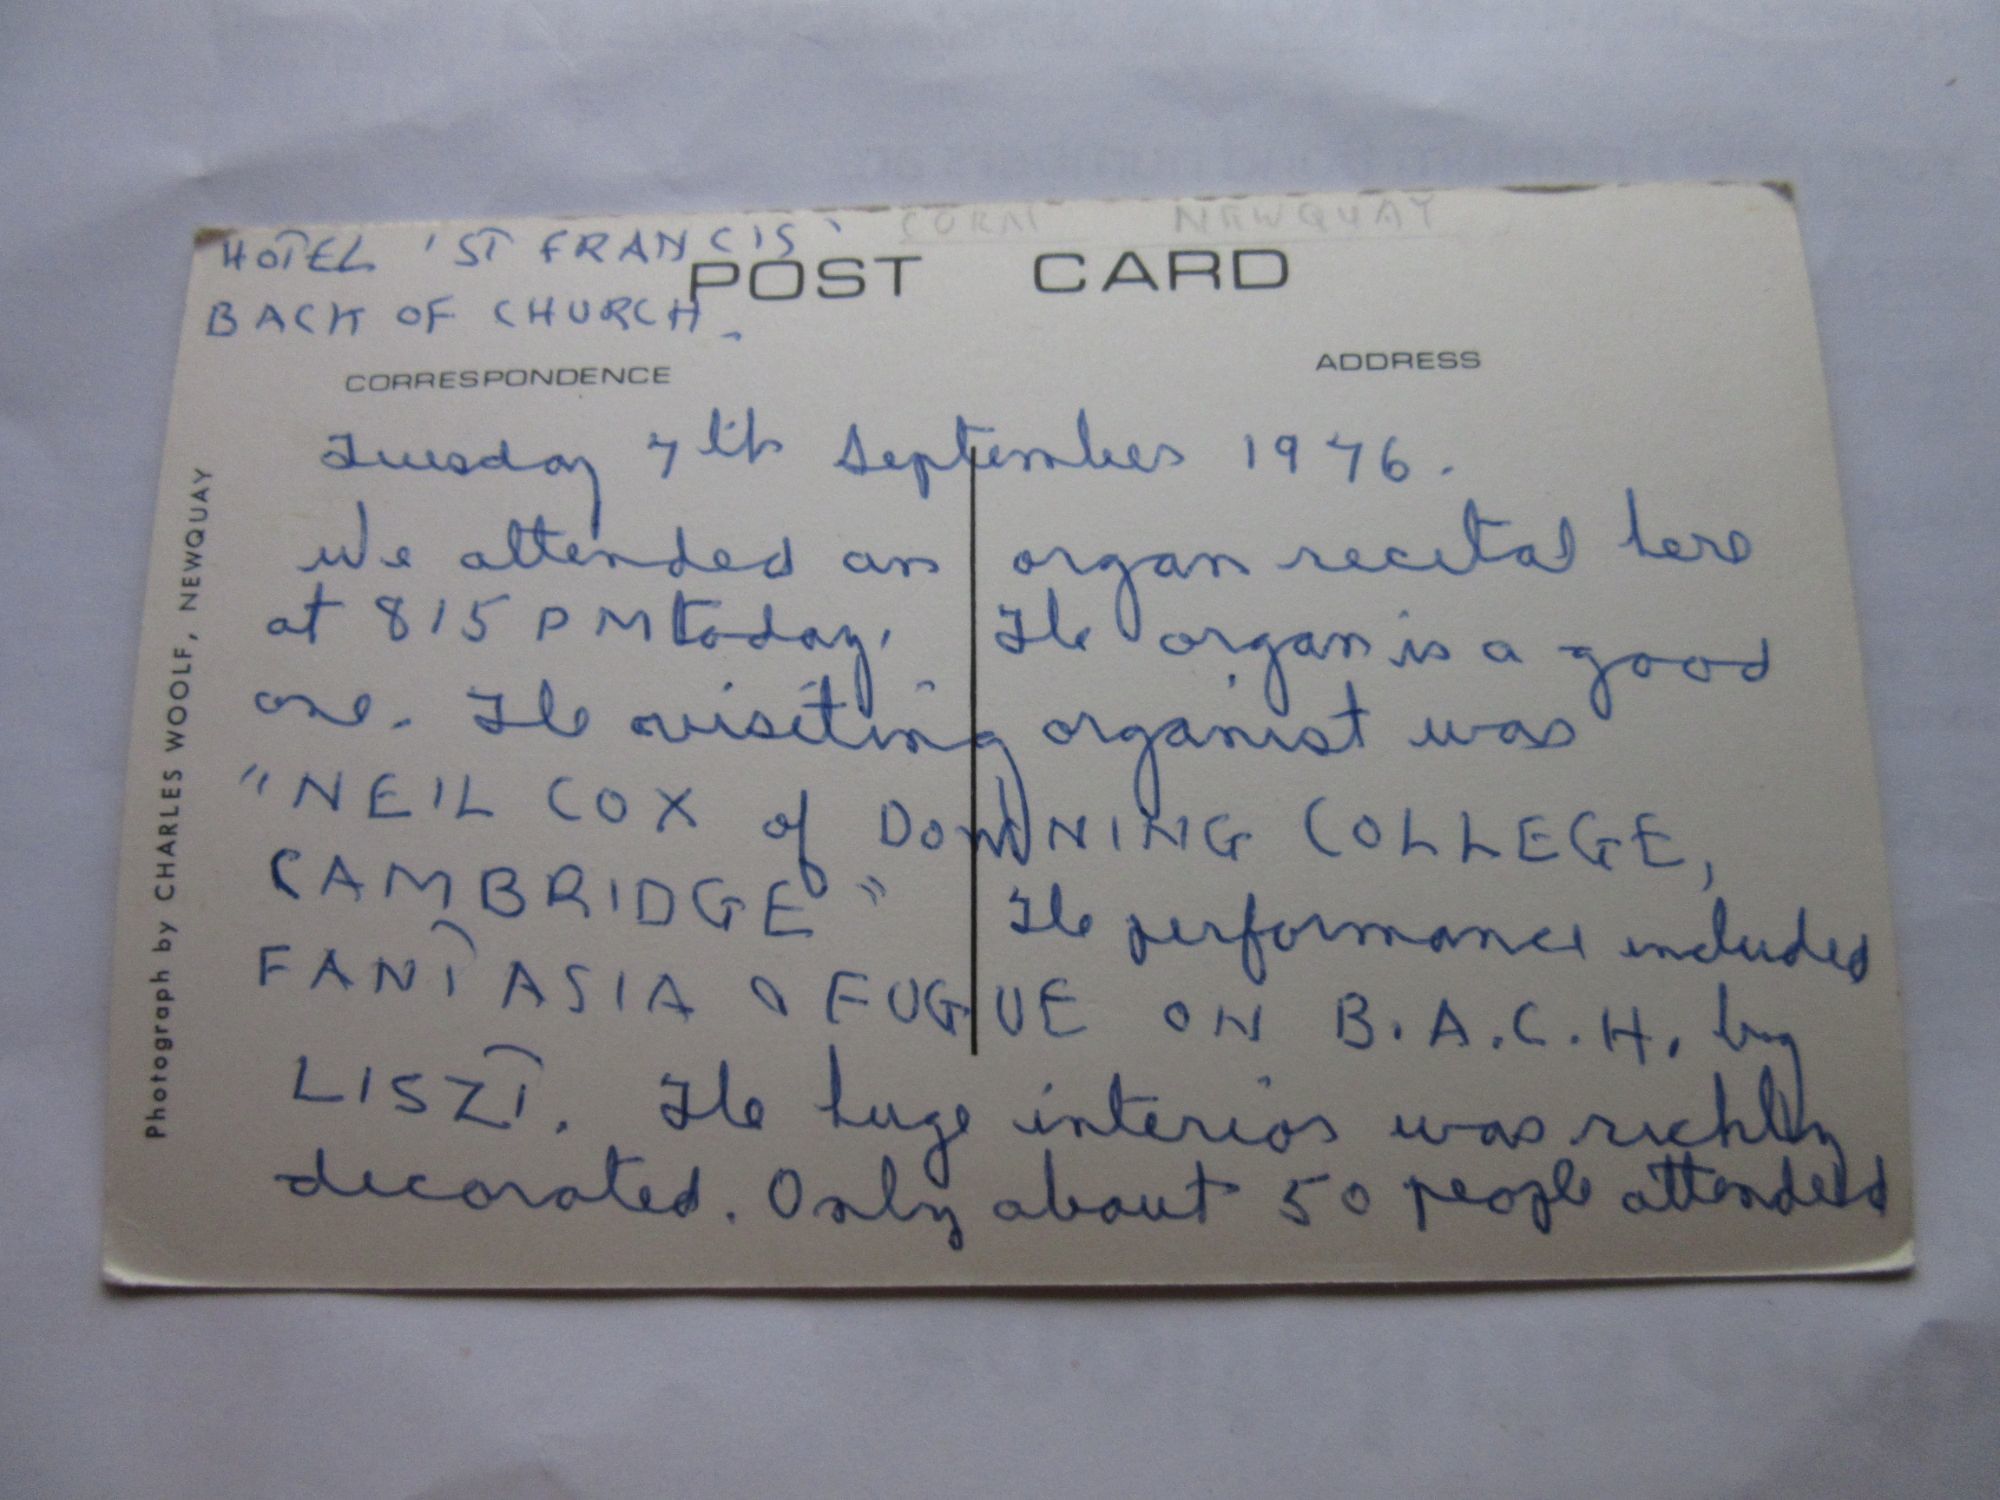 CORN NEWQUAY
HOTEL 'ST FRANCIS'
BACK OF CHURCH.
POST CARD
CORRESPONDENCE
ADDRESS
Tuesday 7th September 1976.
We attended an organ recital here
at 815 PM today. The organ is a good
one. The visiting organist was
"NEIL COX of DOWNING COLLEGE,
CAMBRIDGE" The performance included
FANTASIA & FUGUE ON B.A.C.H. by
LISZT. The huge interior was richly
decorated. Only about 50 people attended
Photograph by CHARLES WOOLF, NEWQUAY